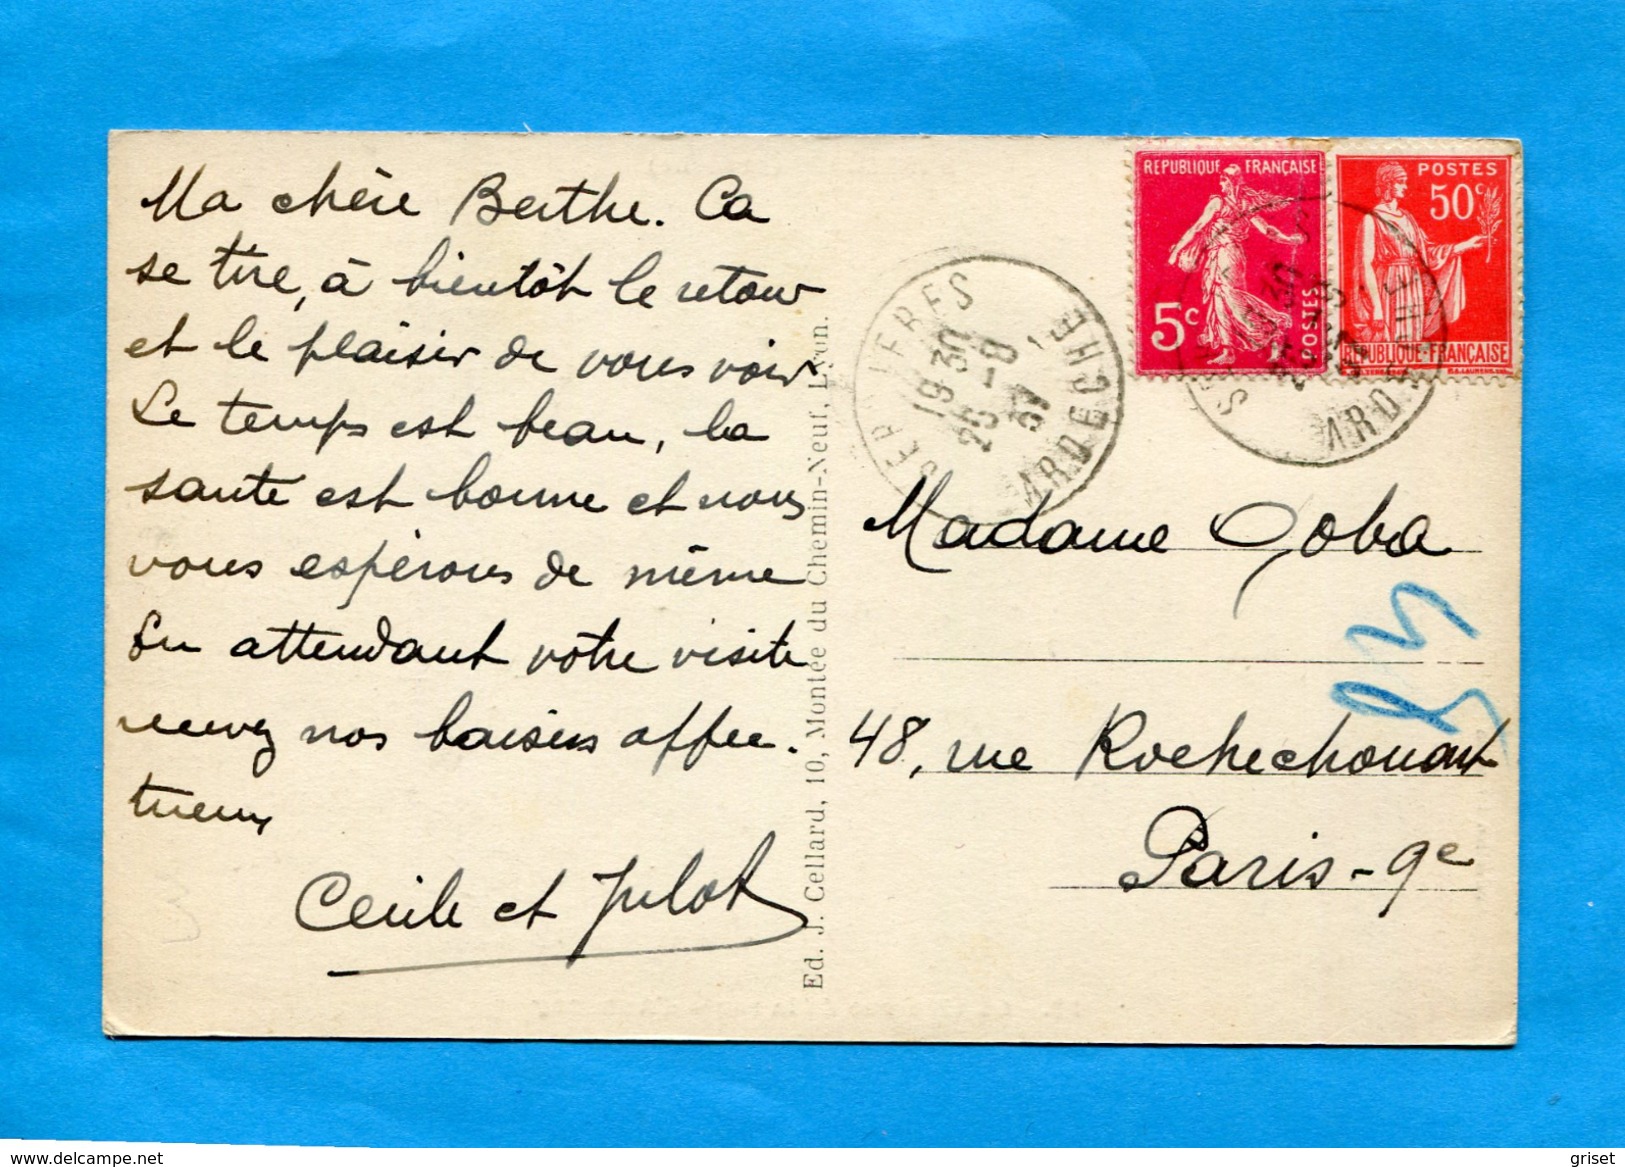 Ma chère Berthe. Ca
se tire, à bientôt le retour
et le plaisir de vous voir
Le temps est beau, la
santé est bonne et nous
vous espérons de même
En attendant votre visite
recevez nos baisers affec-
tueux
Cécile et Julot
Ed. J. Cellard, 10, Montée du Chemin-Neuf, Lyon.
REPUBLIQUE FRANÇAISE
5c
POSTES
POSTES
50c
REPUBLIQUE FRANÇAISE
19 30
25 - 8
37
ARDECHE
ARDECHE
Madame Goba
48, rue Rochechouart
Paris-9e
www.delcampe.net
griset